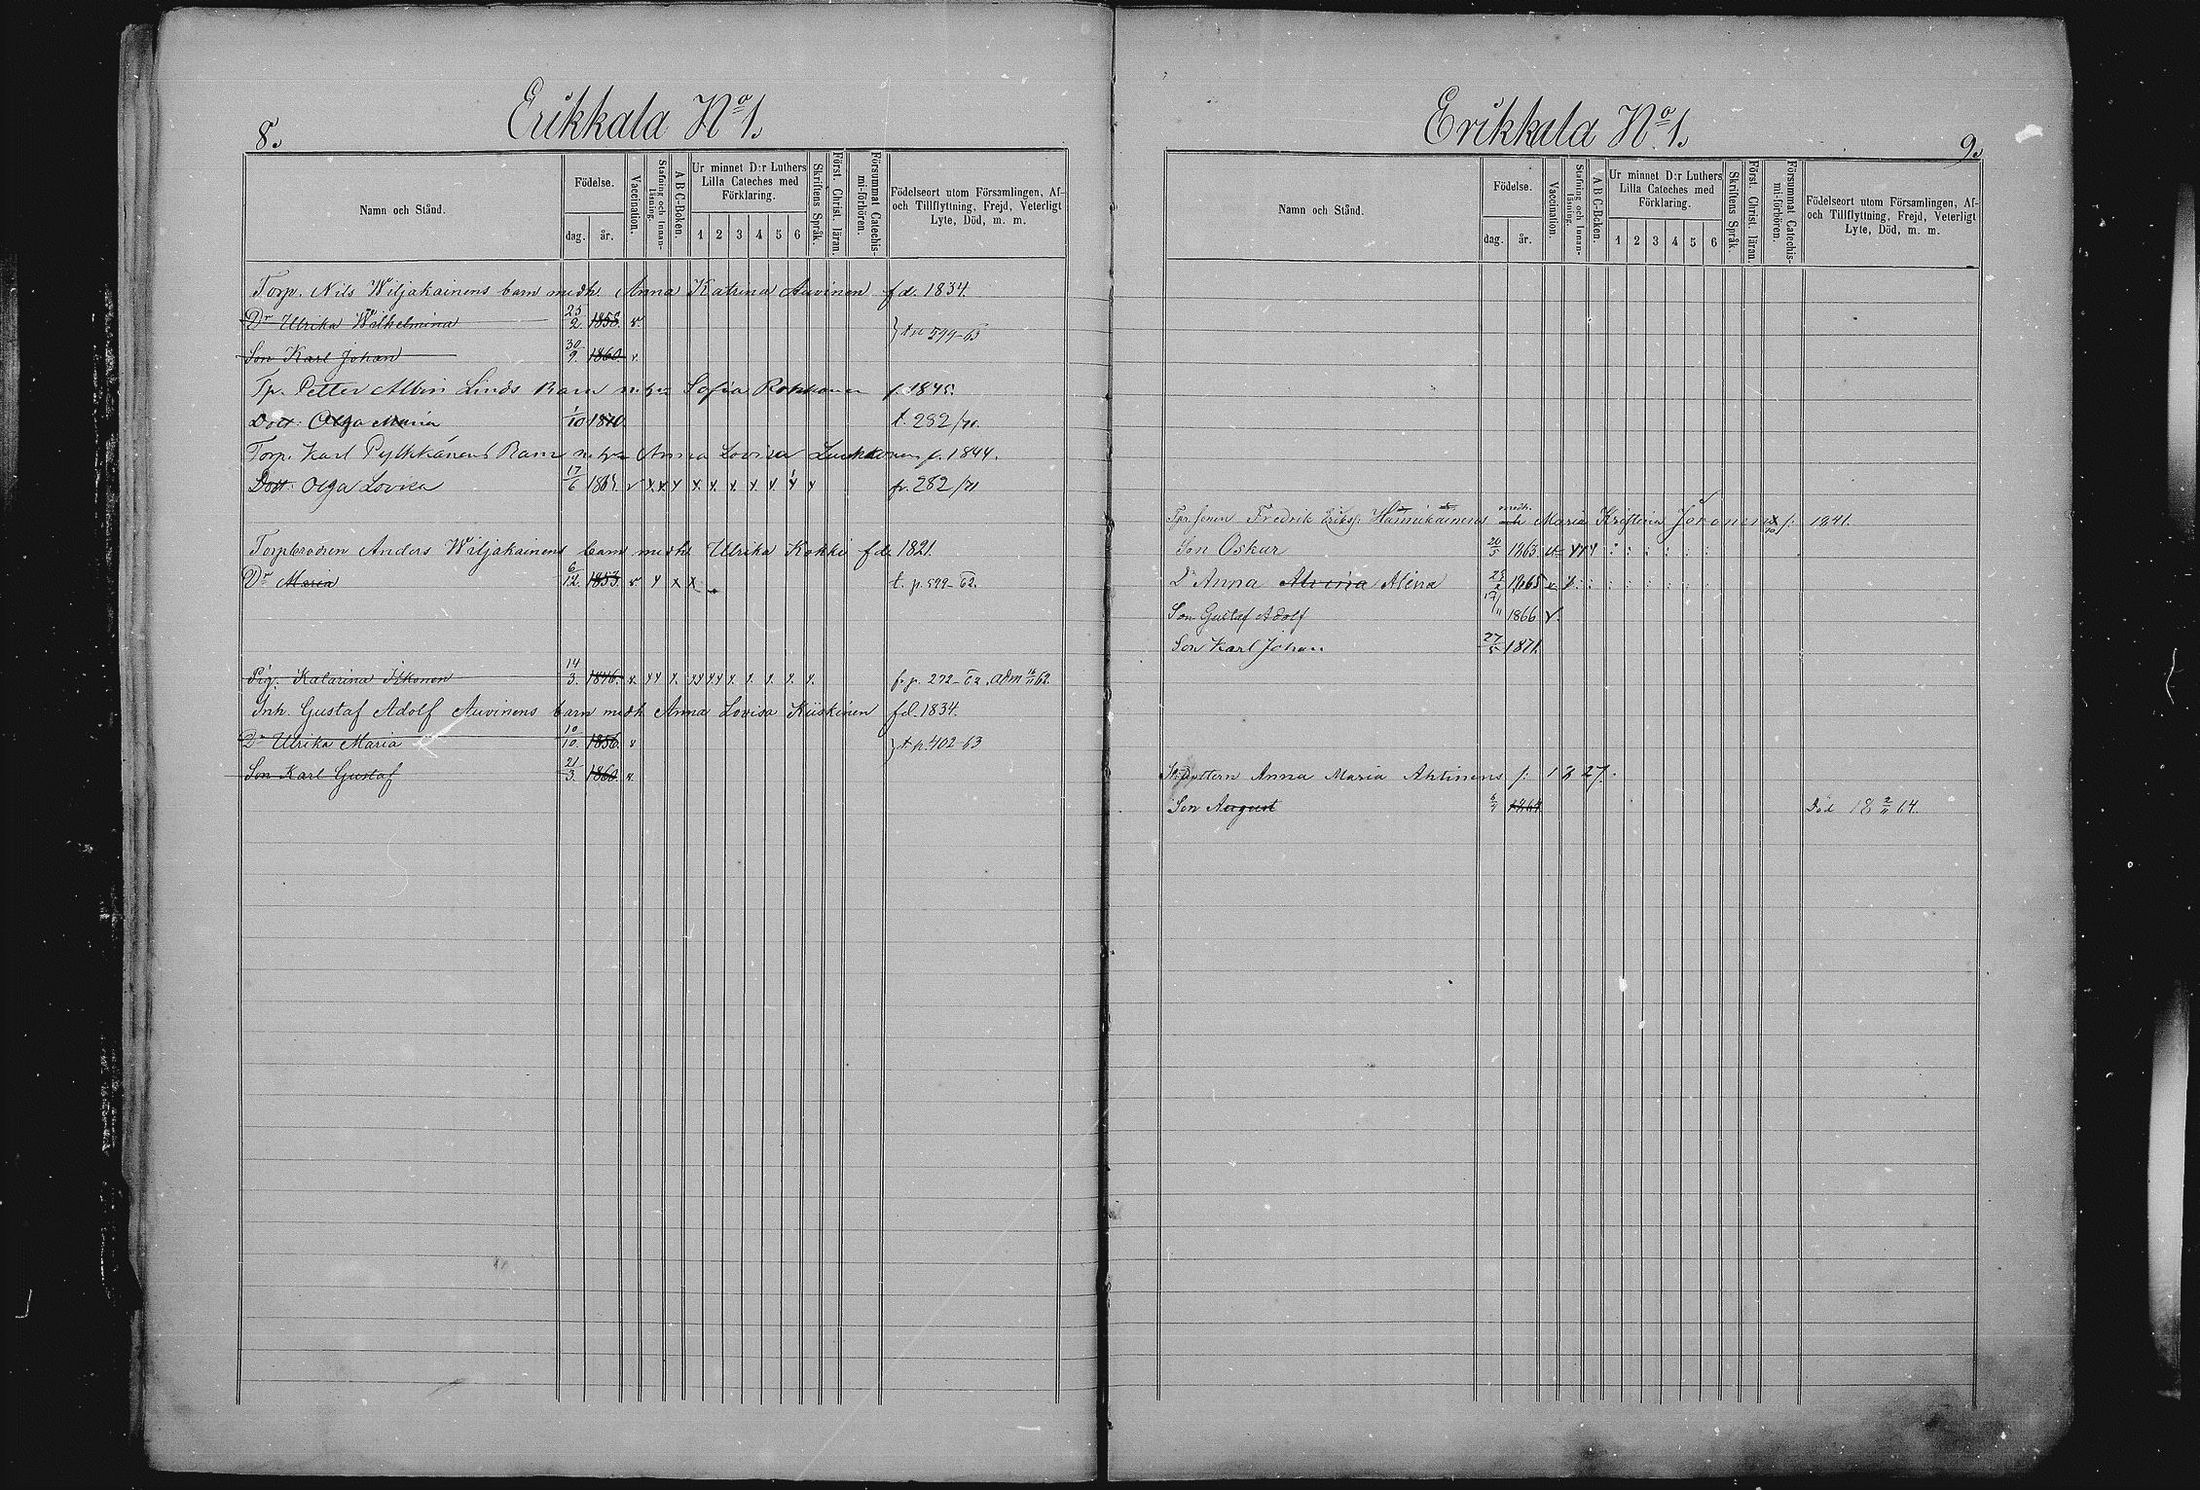 8.
Erikkala No 1.
Namn och Stånd.
Födelse.
dag.
år.
Vaccination.
Stafning och Innan-läsning.
A B C-Boken.
Ur minnet D:r Luthers
Lilla Cateches med
Förklaring.
1 2 3 4 5 6
Skriftens Språk.
Först. Christ. läran.
Försummat Catechis-mi-förhören.
Födelseort utom Församlingen, Af-
och Tillflyttning, Frejd, Veterligt
Lyte, Död, m. m.
Torp. Nils Wiljakainens barn medh. Anna Katrina Auvinen fd. 1834.
Dr Ulrika Wilhelmina 25/2. 1858. v.
Son Karl Johan 30/9. 1860. v. 599-63
Tp. Petter Albin Linds Barn Sofia f. 1845.
Dott. Olga Maria 1/10 1870 t. 282/71.
Torp. Karl Pylkkänens Barn Anna Lovisa f. 1844.
Dott. Olga Lovisa 17/6 1865. v x x x x x x x x x x fr. 282/71
Torpbrodren Anders Wiljakainens barn medh Ulrika Kokki fd. 1821.
Dr Maria 6/12. 1853. v x x x t. p. 599-62.
Pig. Katarina Itkonen 14/3. 1846. v. fr p. 272-62. adm 62.
Inh. Gustaf Adolf Auvinens barn medh Anna Lovisa Kiiskinen fd. 1834.
Dr Ulrika Maria 10/10. 1856. v
Son Karl Gustaf 21/3. 1860. v. t p. 402-63
Erikkala No 1.
9.
Namn och Stånd.
Födelse.
dag.
år.
Vaccination.
Stafning och Innan-läsning.
A B C-Boken.
Ur minnet D:r Luthers
Lilla Cateches med
Förklaring.
1 2 3 4 5 6
Skriftens Språk.
Först. Christ. läran.
Försummat Catechis-mi-förhören.
Födelseort utom Församlingen, Af-
och Tillflyttning, Frejd, Veterligt
Lyte, Död, m. m.
Tpr. sonen Fredrik Erikss. Hännikäinens medh. Maria Kristina Joronen f. 1841.
Son Oskar 20/5 1863
Dr Anna Alvina Alina 1865
Son Gustaf Adolf 1866 v.
Son Karl Johan 27/5 1871.
dottern Anna Maria Ahtinens f. 1827.
Son August 1864 Död 18 2/11 64.